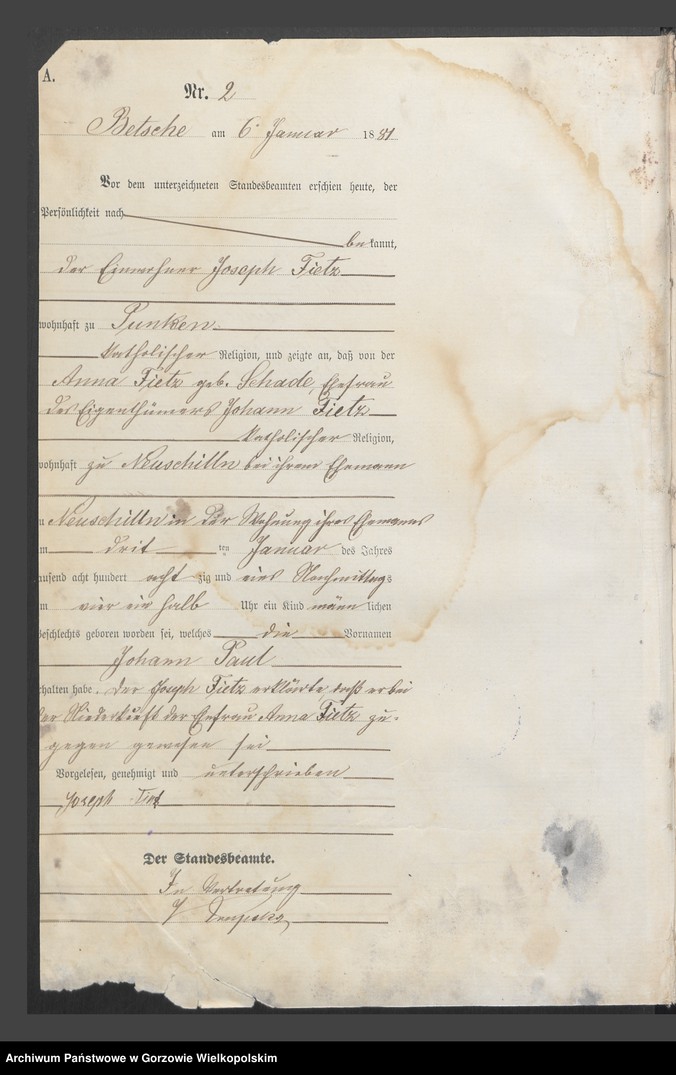 A.
Nr. 2
Betsche am 6 Januar 1881
Vor dem unterzeichneten Standesbeamten erschien heute, der
Persönlichkeit nach
bekannt,
der Einwohner Joseph Fietz
wohnhaft zu Punken
katholischer Religion, und zeigte an, daß von der
Anna Fietz geb. Schade, Ehefrau
des Eigenthümers Johann Fietz
katholischer Religion,
wohnhaft zu Neuschilln bei ihrem Ehemann
Neuschilln in der Wohnung ihres Ehemanns
drit ten Januar des Jahres
tausend acht hundert acht zig und eins Nachmittags
vier ein halb Uhr ein Kind männ lichen
Geschlechts geboren worden sei, welches die Vornamen
Johann Paul
erhalten habe. Der Joseph Fietz erklärte, daß er bei
der Niederkunft der Ehefrau Anna Fietz zu-
gegen gewesen sei
Vorgelesen, genehmigt und unterschrieben
Joseph
Der Standesbeamte.
In Vertretung
Archiwum Państwowe w Gorzowie Wielkopolskim